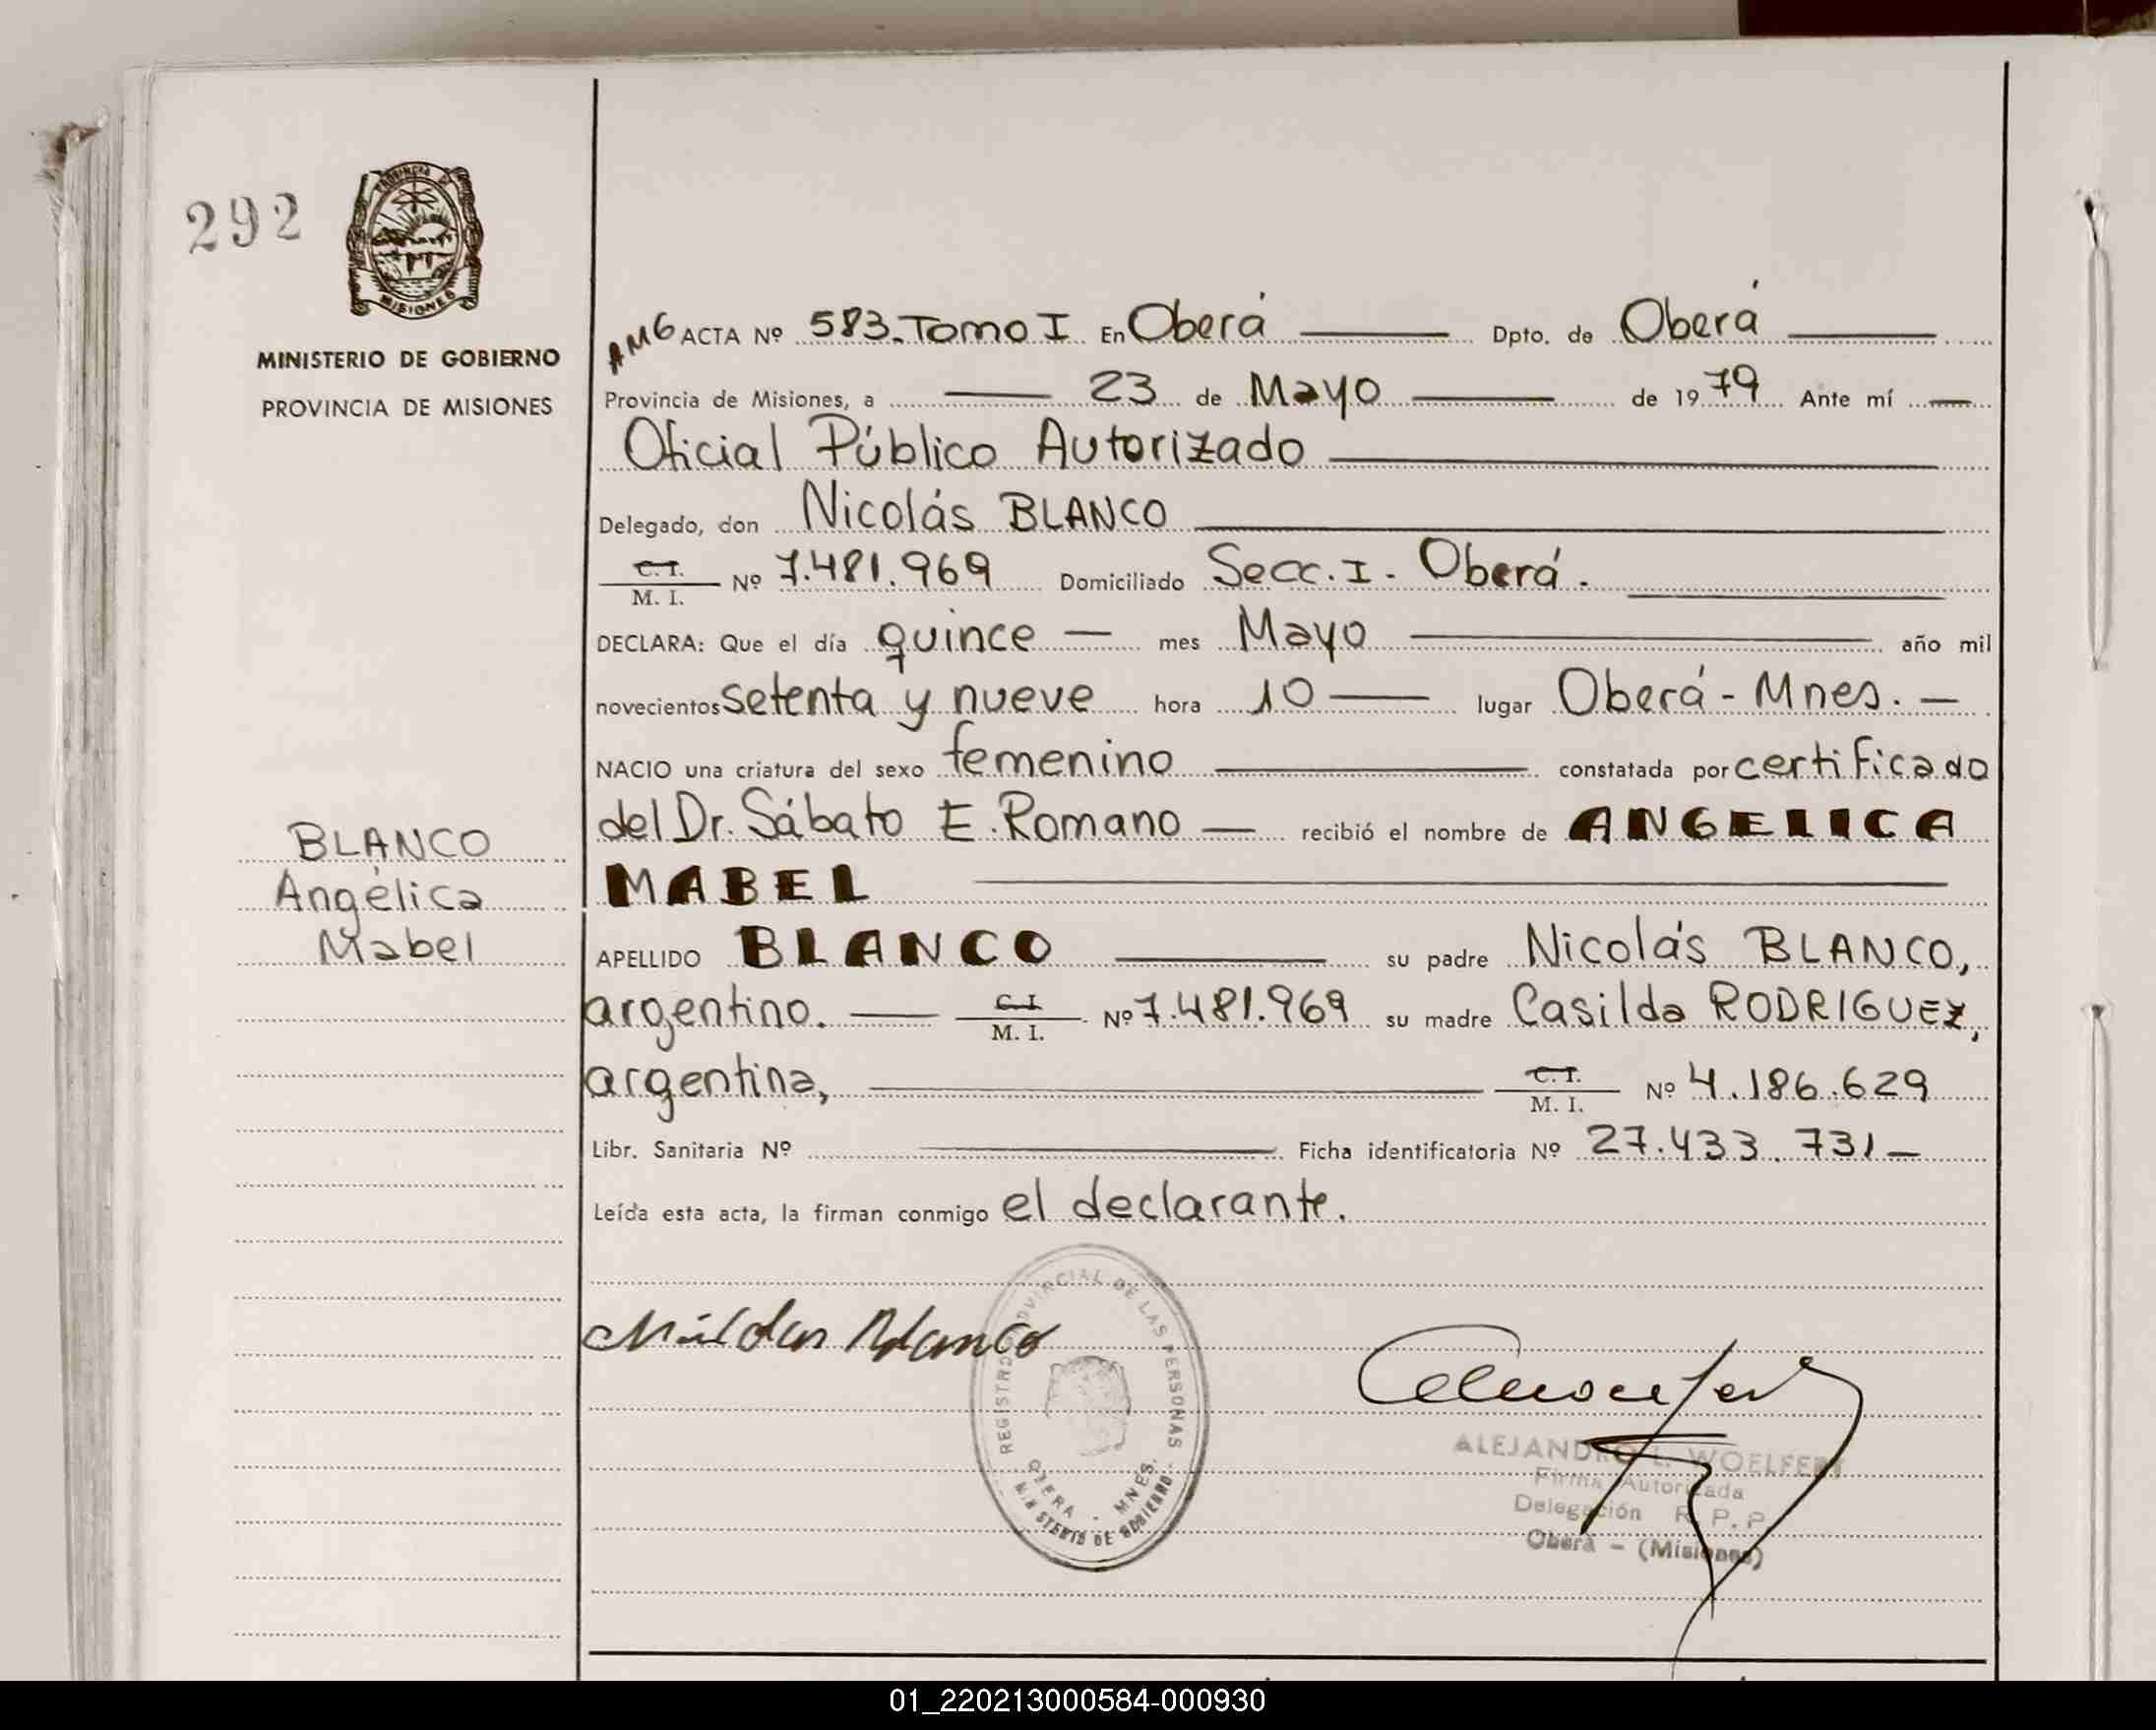 292
PROVINCIA DE
MISIONES
MINISTERIO DE GOBIERNO
PROVINCIA DE MISIONES
BLANCO
Angélica
Mabel
AMG ACTA Nº 583.Tomo I En Oberá Dpto. de Oberá
Provincia de Misiones, a 23 de Mayo de 1979 Ante mí
Oficial Público Autorizado
Delegado, don Nicolás BLANCO
C.I.
M. I. Nº 7.481.969 Domiciliado Secc. I - Oberá.
DECLARA: Que el día quince mes Mayo año mil
novecientos setenta y nueve hora 10 lugar Oberá - Mnes. —
NACIO una criatura del sexo femenino constatada por certificado
del Dr. Sábato E. Romano — recibió el nombre de ANGELICA
MABEL
APELLIDO BLANCO su padre Nicolás BLANCO,
argentino. C.I. M. I. Nº 7.481.969 su madre Casilda RODRIGUEZ,
argentina, C.I. M. I. Nº 4.186.629
Libr. Sanitaria Nº Ficha identificatoria Nº 27.433.731—
Leída esta acta, la firman conmigo el declarante.
Nicolas Blanco
REGISTRO PROVINCIAL DE LAS PERSONAS
OBERA - MNES.
MINISTERIO DE GOBIERNO
ALEJANDRO L. WOELFERT
Firma Autorizada
Delegación R. P. P.
Oberá - (Misiones)
01_220213000584-000930